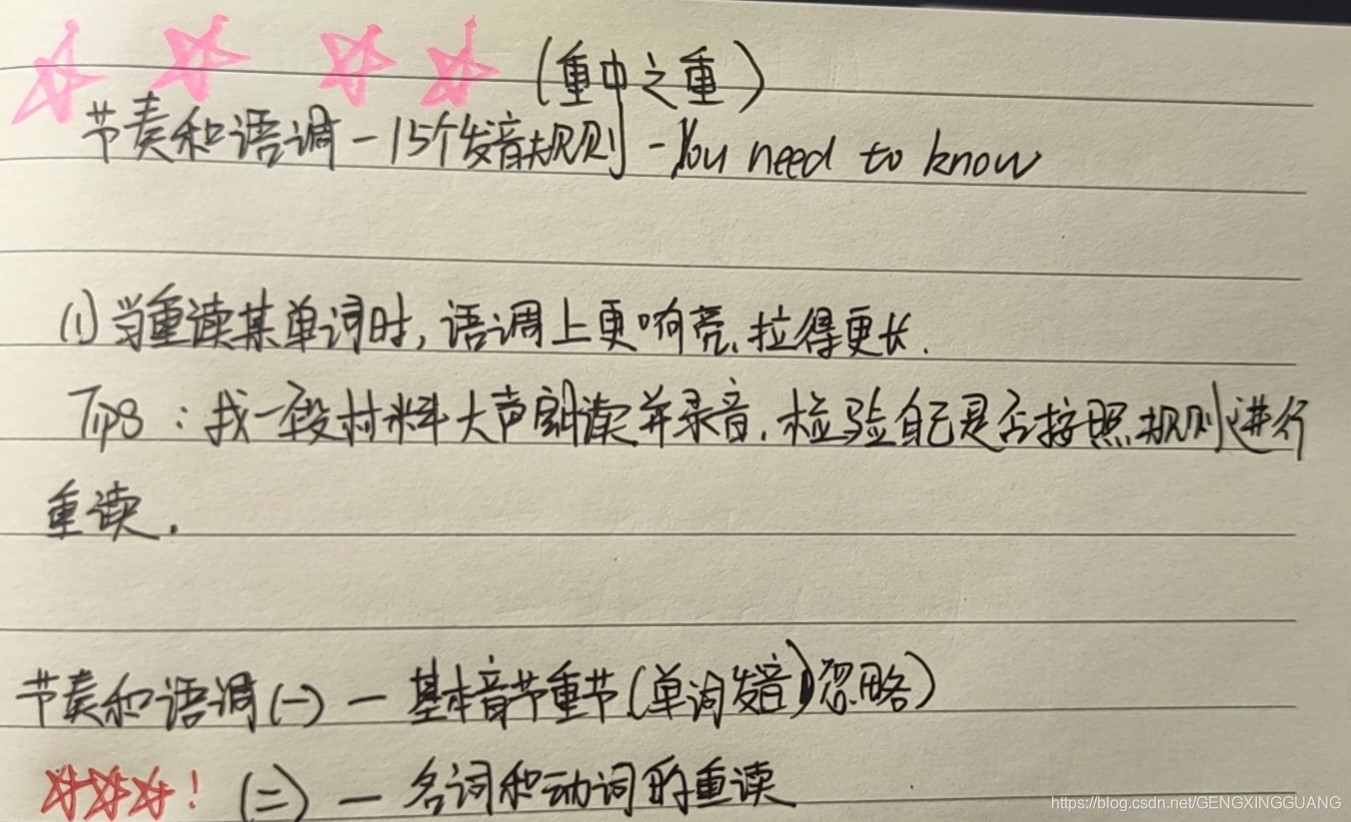 (重中之重)
节奏和语调-15个发音规则-You need to know
(1)当重读某单词时,语调上更响亮、拉得更长.
Tips:找一段材料大声朗读并录音,检验自己是否按照规则进行
重读.
节奏和语调(一)—基本音节重节(单词发音)忽略)
!(二)—名词和动词的重读
https://blog.csdn.net/GENGXINGGUANG